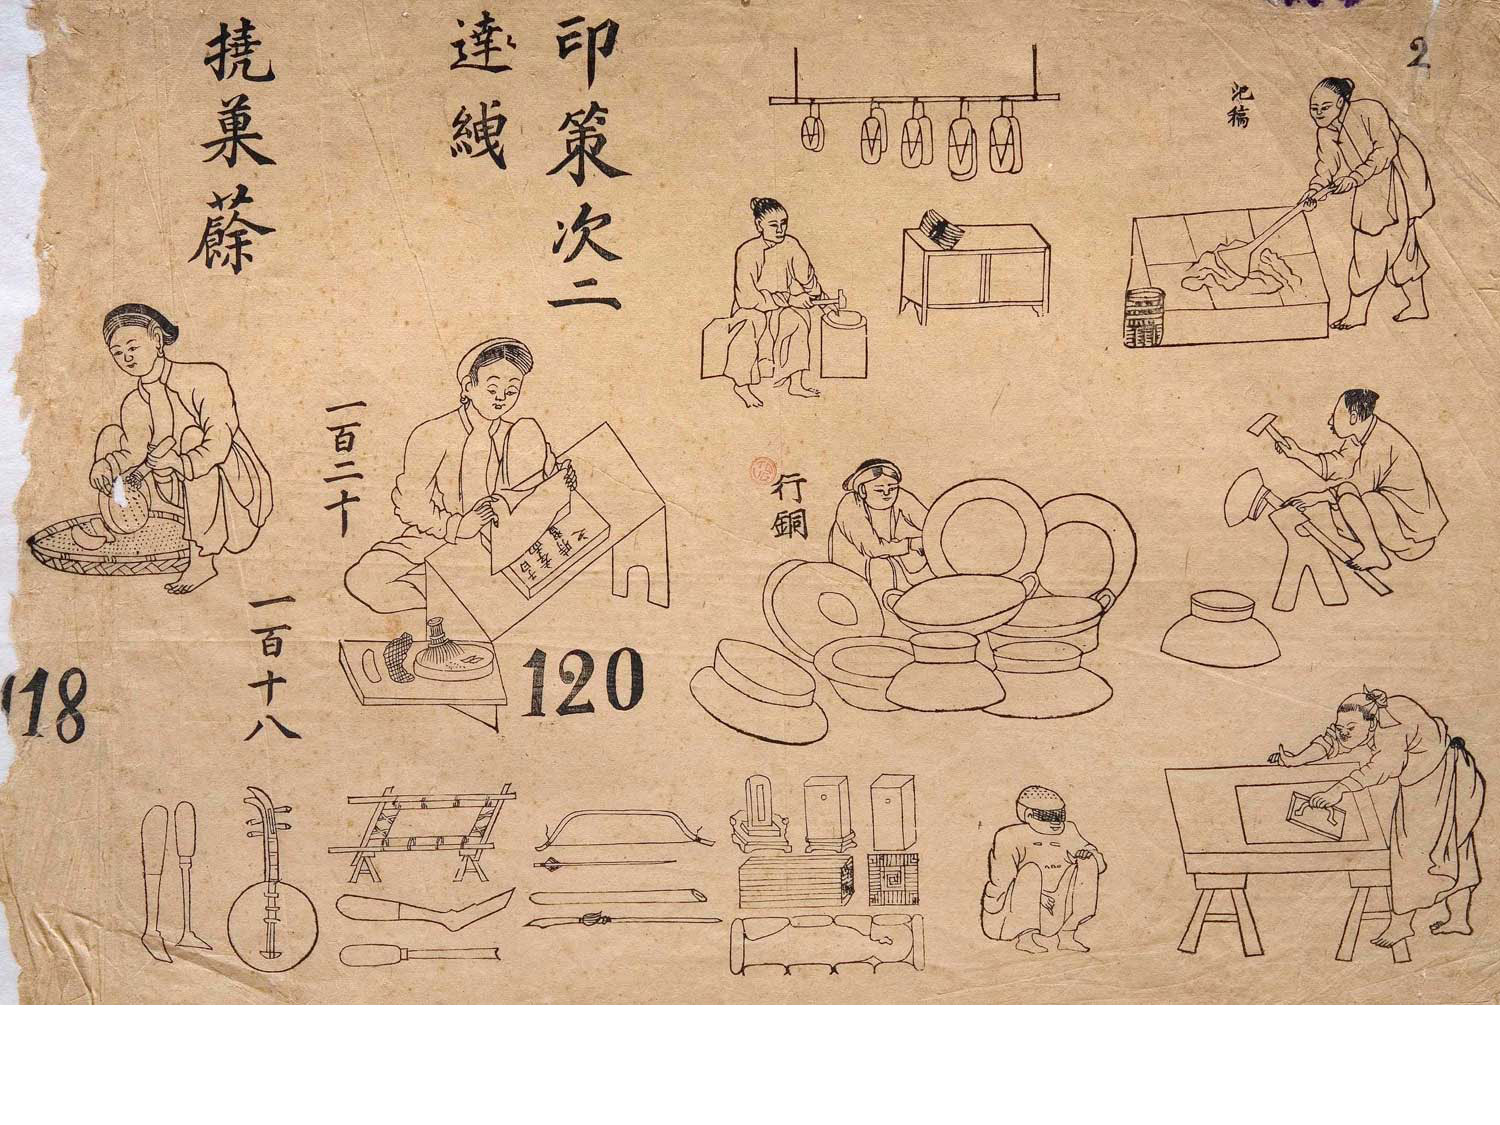 2
印策次二
達絏
撓菓
稿
行銅
一百二十
120
一百十八
118